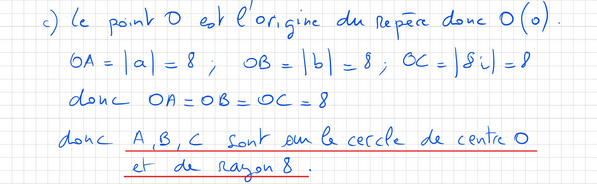 c) Le point O est l'origine du repère donc O(0).
OA = |a| = 8 ; OB = |b| = 8 ; OC = |8i| = 8
donc OA = OB = OC = 8
donc A, B, C sont sur le cercle de centre O
et de rayon 8.